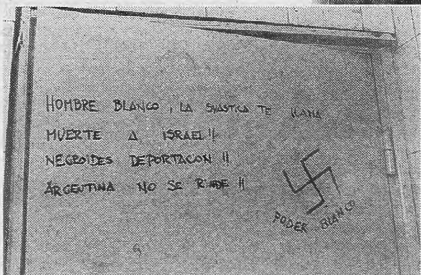 HOMBRE BLANCO, LA SVASTICA TE LLAMA
MUERTE A ISRAEL!!
NEGROIDES DEPORTACON !!
ARGENTINA NO SE RINDE !!
PODER BLANCO